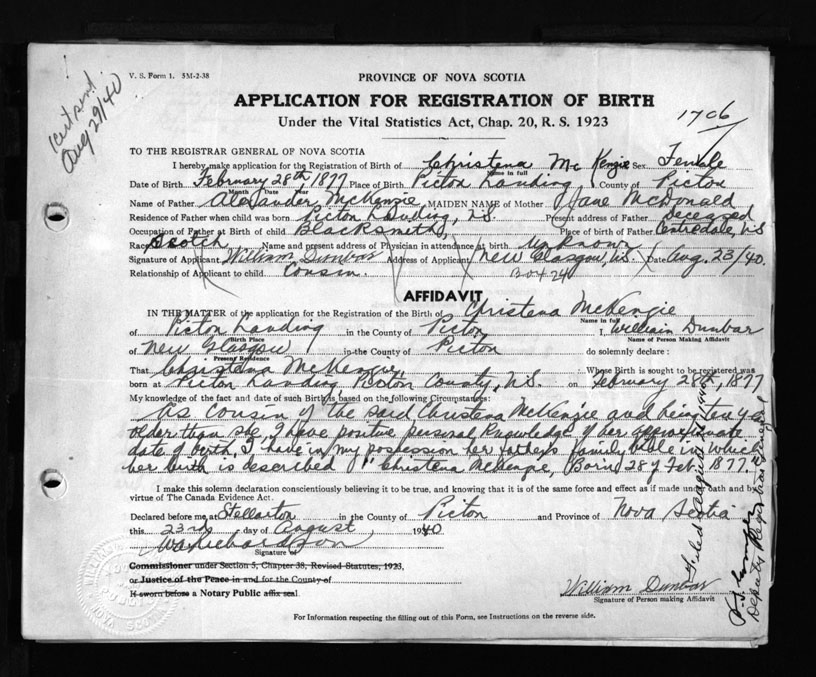 V. S. Form 1. 5M-2-38
Cert sent
Aug 29/40
PROVINCE OF NOVA SCOTIA
APPLICATION FOR REGISTRATION OF BIRTH
Under the Vital Statistics Act, Chap. 20, R. S. 1923
1706
TO THE REGISTRAR GENERAL OF NOVA SCOTIA
I hereby make application for the Registration of Birth of Christena McKenzie Sex Female
Name in full
Date of Birth February 28th, 1877 Place of Birth Picton Landing County of Picton
Month Date Year
Name of Father Alexander McKenzie, MAIDEN NAME of Mother Jane McDonald
Residence of Father when child was born Picton Landing, N.S. Present address of Father Deceased
Occupation of Father at Birth of child Blacksmith, Place of birth of Father Centredale, N.S
Race Scotch Name and present address of Physician in attendance at birth Unknown
Signature of Applicant William Dunbar Address of Applicant New Glasgow, N.S. Date Aug. 23/40.
Relationship of Applicant to child Cousin. Box 24
AFFIDAVIT
IN THE MATTER of the application for the Registration of the Birth of Christena McKenzie
Name in full
of Picton Landing in the County of Picton I, William Dunbar
Birth Place Name of Person Making Affidavit
of New Glasgow in the County of Picton do solemnly declare :
Present Residence
That Christena McKenzie, Whose Birth is sought to be registered was
born at Picton Landing, Picton County, N.S. on February 28th, 1877
My knowledge of the fact and date of such Birth is based on the following Circumstances:
As Cousin of the said Christena McKenzie and being ten yrs
older than she, I have positive personal knowledge of her approximate
date of birth. I have in my possession her father's family bible in which
her birth is described "Christena McKenzie, Born 28 of Feb. 1877."
I make this solemn declaration conscientiously believing it to be true, and knowing that it is of the same force and effect as if made under oath and by
virtue of The Canada Evidence Act.
Declared before me at Stellarton in the County of Picton and Province of Nova Scotia
this 23rd day of August 1940
W.A. Richardson
Signature of
Commissioner under Section 5, Chapter 38, Revised Statutes, 1923,
or Justice of the Peace in and for the County of
If sworn before a Notary Public affix seal
William Dunbar
Signature of Person making Affidavit
For Information respecting the filling out of this Form, see Instructions on the reverse side.
Filed August 1940
Deputy Registrar General